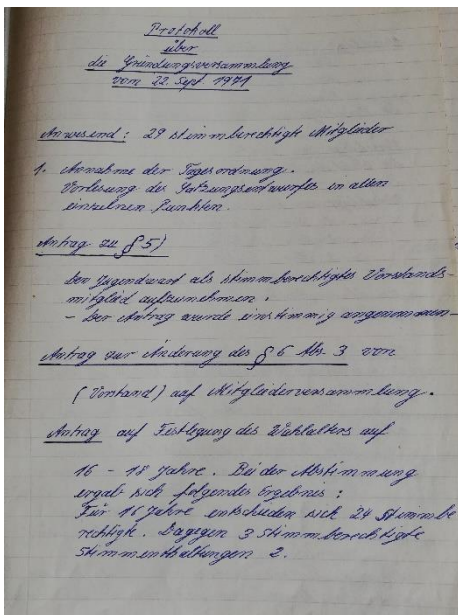 Protokoll
über
die Gründungsversammlung
vom 22. Sept 1971
Anwesend: 29 stimmberechtigte Mitglieder
1. Annahme der Tagesordnung.
Vorlesung des Satzungsentwurfes in allen
einzelnen Punkten.
Antrag zu § 5)
Den Jugendwart als stimmberechtigtes Vorstands-
mitglied aufzunehmen.
- Der Antrag wurde einstimmig angenommen -
Antrag zur Änderung des § 6 Abs. 3 von
(Vorstand) auf Mitgliederversammlung.
Antrag auf Festlegung des Wahlalters auf
16 - 18 Jahre. Bei der Abstimmung
ergab sich folgendes Ergebnis:
Für 16 Jahre entschieden sich 24 Stimmbe
rechtigte. Dagegen 3 Stimmberechtigte
Stimmenthaltungen 2.